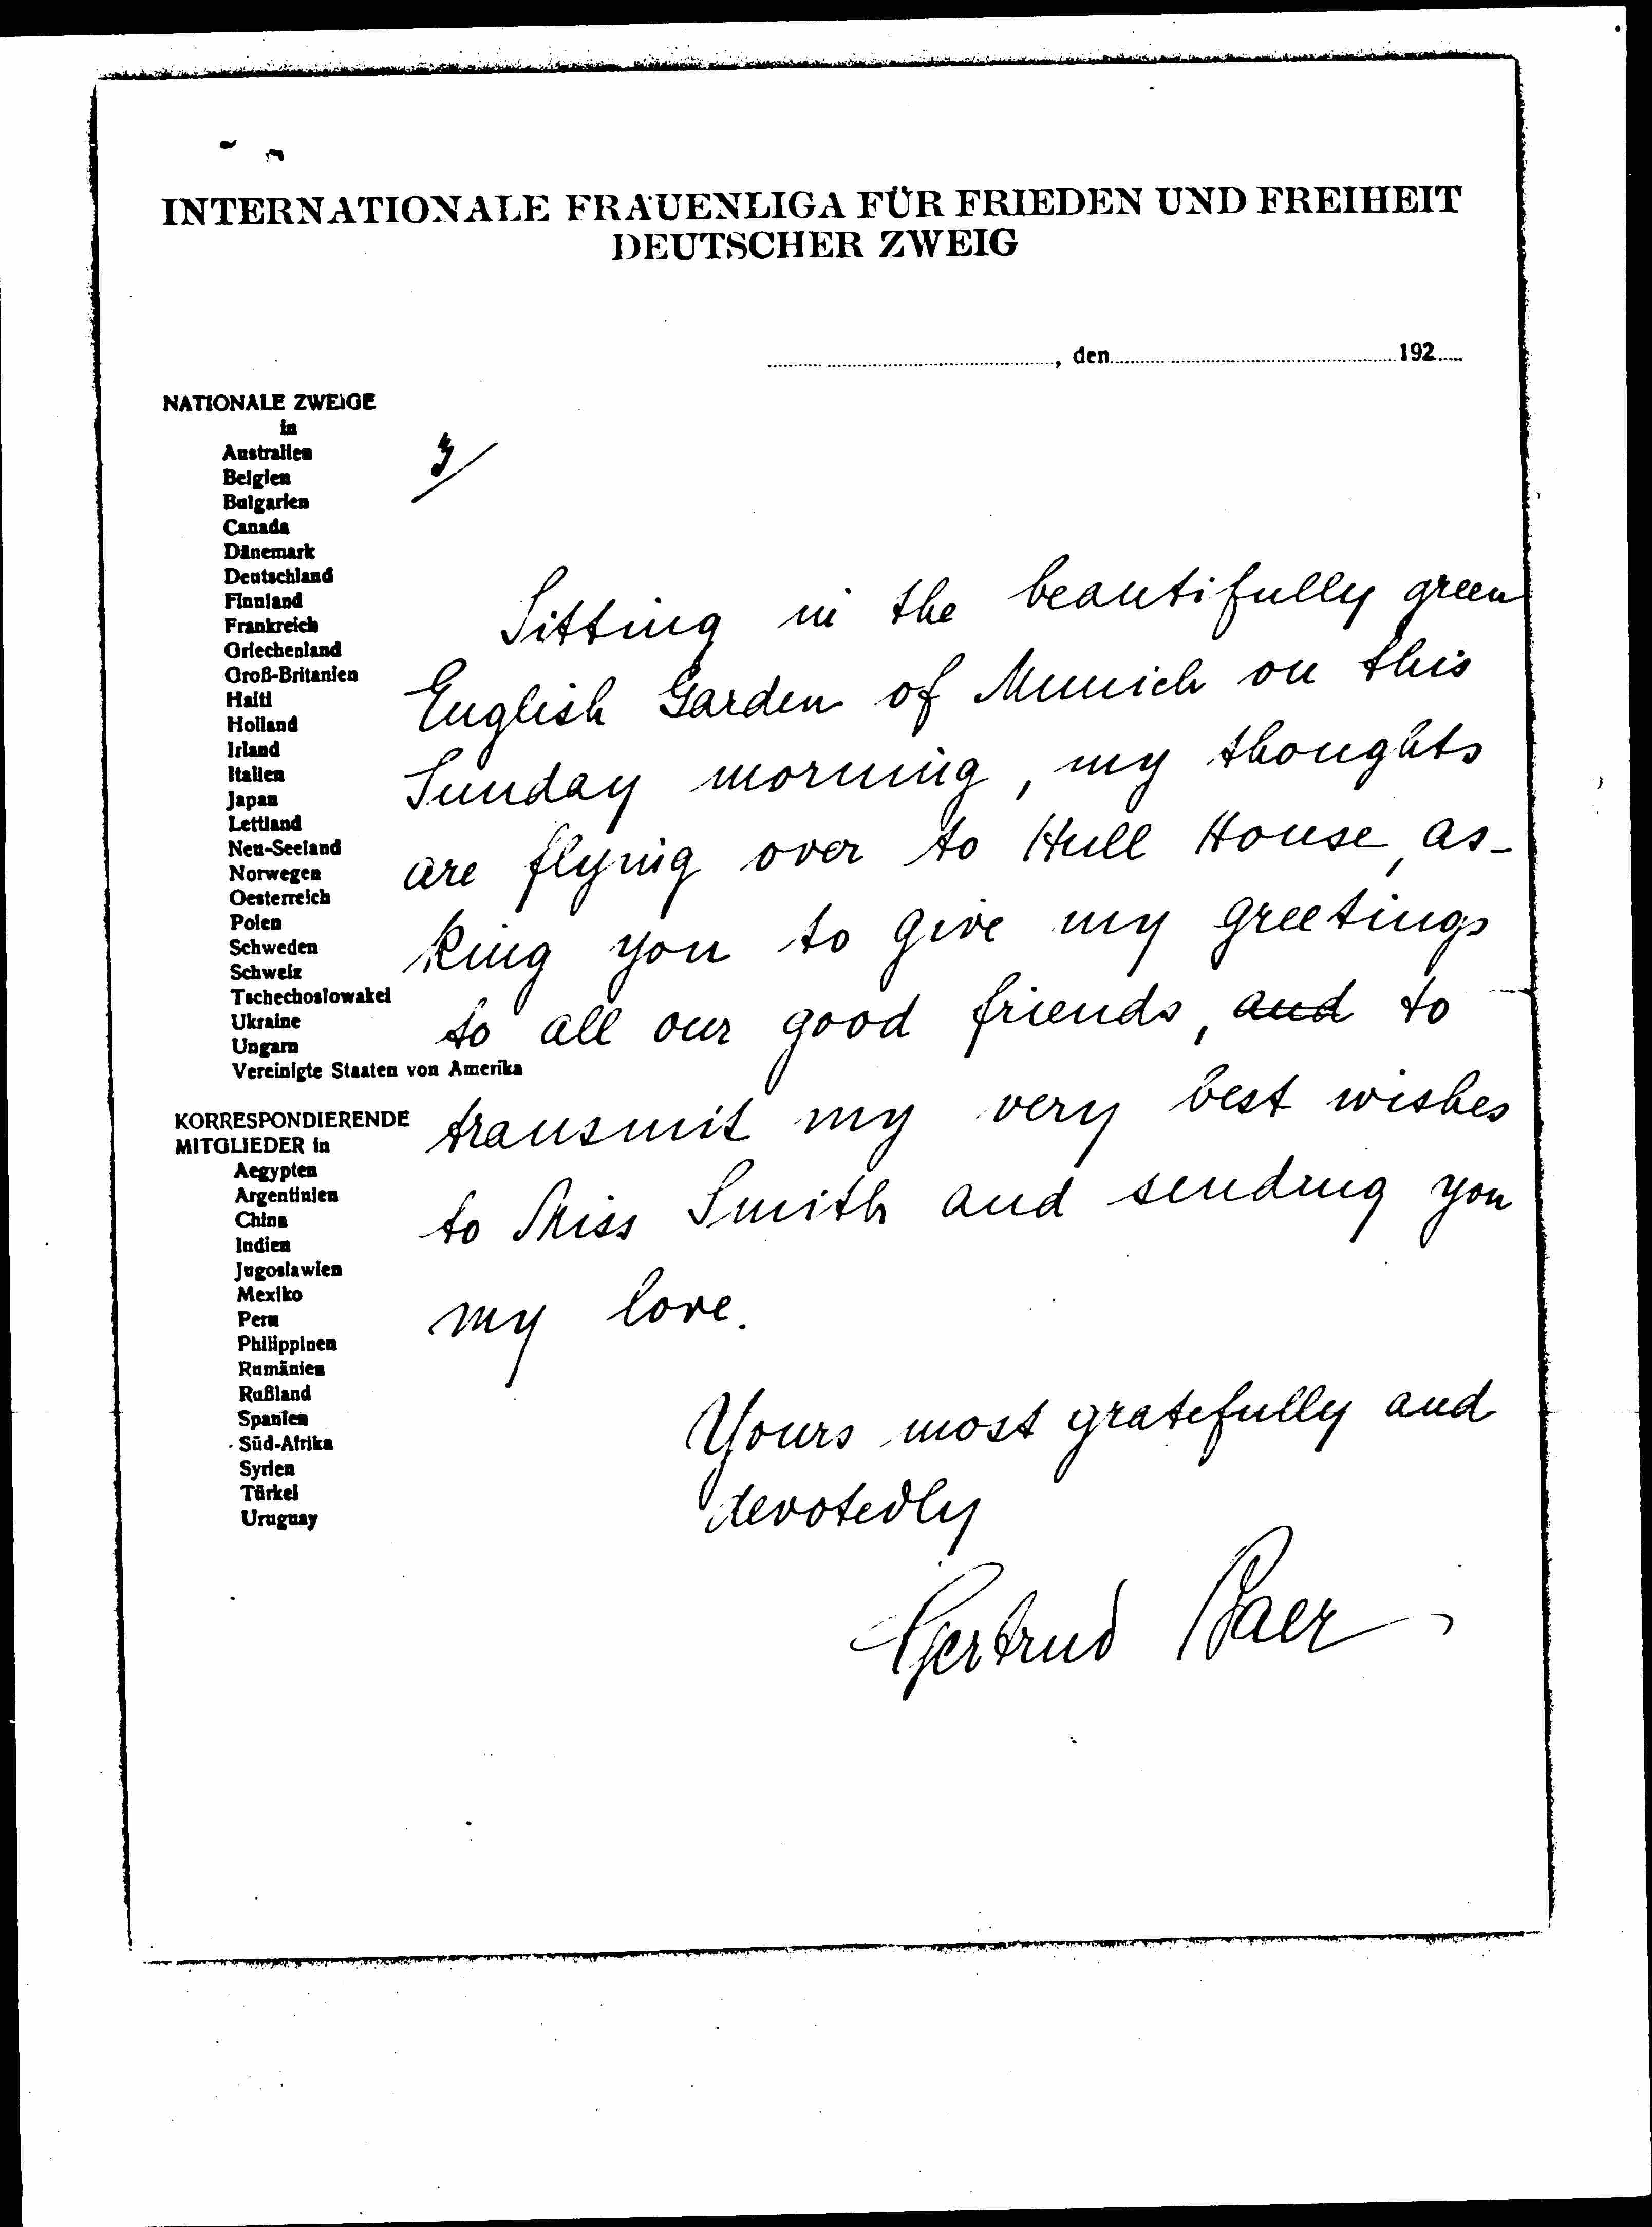 INTERNATIONALE FRAUENLIGA FÜR FRIEDEN UND FREIHEIT
DEUTSCHER ZWEIG
, den 192
NATIONALE ZWEIGE
in
Australien
Belgien
Bulgarien
Canada
Dänemark
Deutschland
Finnland
Frankreich
Griechenland
Groß-Britanien
Haiti
Holland
Irland
Italien
Japan
Lettland
Neu-Seeland
Norwegen
Oesterreich
Polen
Schweden
Schweiz
Tschechoslowakei
Ukraine
Ungarn
Vereinigte Staaten von Amerika
KORRESPONDIERENDE
MITGLIEDER in
Aegypten
Argentinien
China
Indien
Jugoslawien
Mexiko
Peru
Philippinen
Rumänien
Rußland
Spanien
Süd-Afrika
Syrien
Türkei
Uruguay
3/
Sitting in the beautifully green
English Garden of Munich on this
Sunday morning, my thoughts
are flying over to Hull House, as-
king you to give my greetings
to all our good friends, and to
transmit my very best wishes
to Miss Smith and sending you
my love.
Yours most gratefully and
devotedly
Gertrud Baer